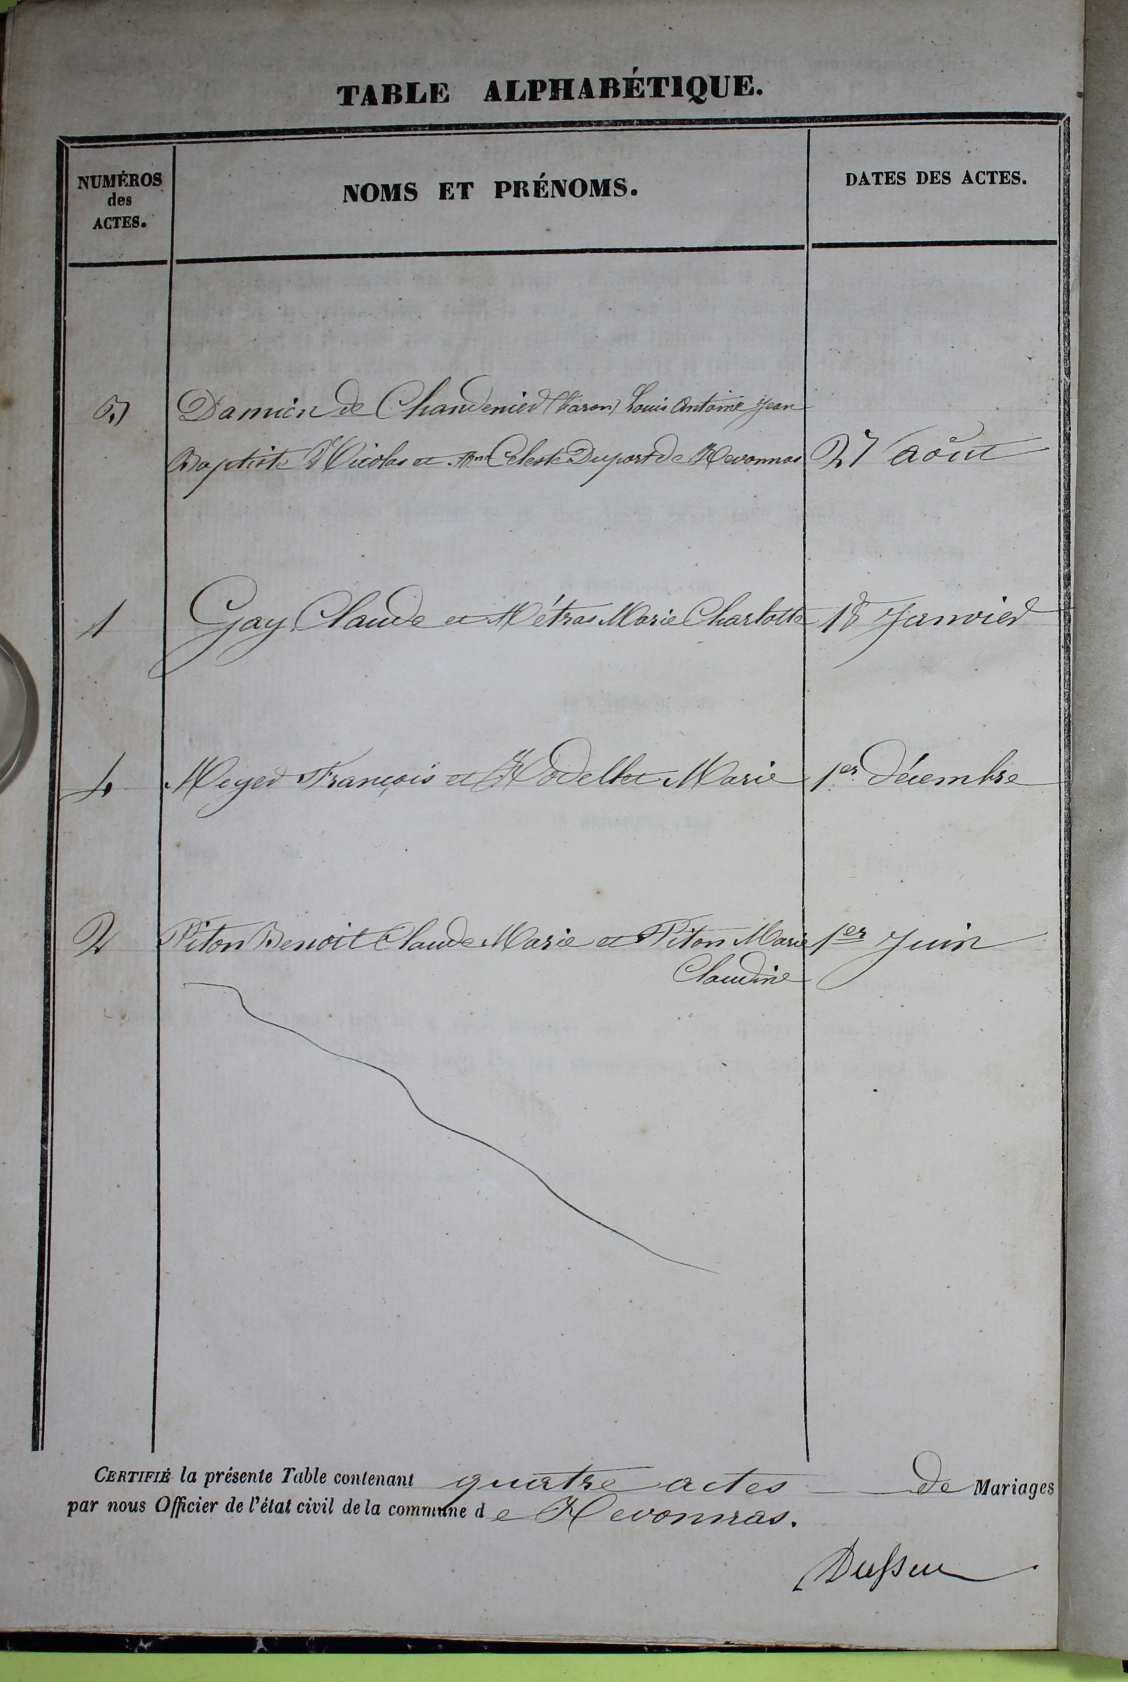 TABLE ALPHABÉTIQUE.
NUMÉROS
des
ACTES.
NOMS ET PRÉNOMS.
DATES DES ACTES.
3 Damien de Chandenier (Baron) Louis Antoine Jean
Baptiste Nicolas et Celeste Duport de Revonnas 27 août
1 Gay Claude et Métras Marie Charlotte 18 Janvier
4 Meyer François et Rodellet Marie 1er décembre
2 Piton Benoit Claude Marie et Piton Marie 1er Juin
Claudine
CERTIFIÉ la présente Table contenant quatre actes de Mariages
par nous Officier de l'état civil de la commune de Revonnas.